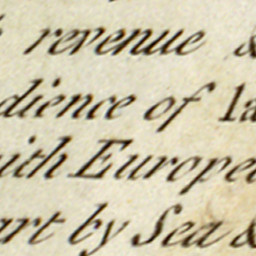 revenue &
dience of la
with Europe
art by Sea &